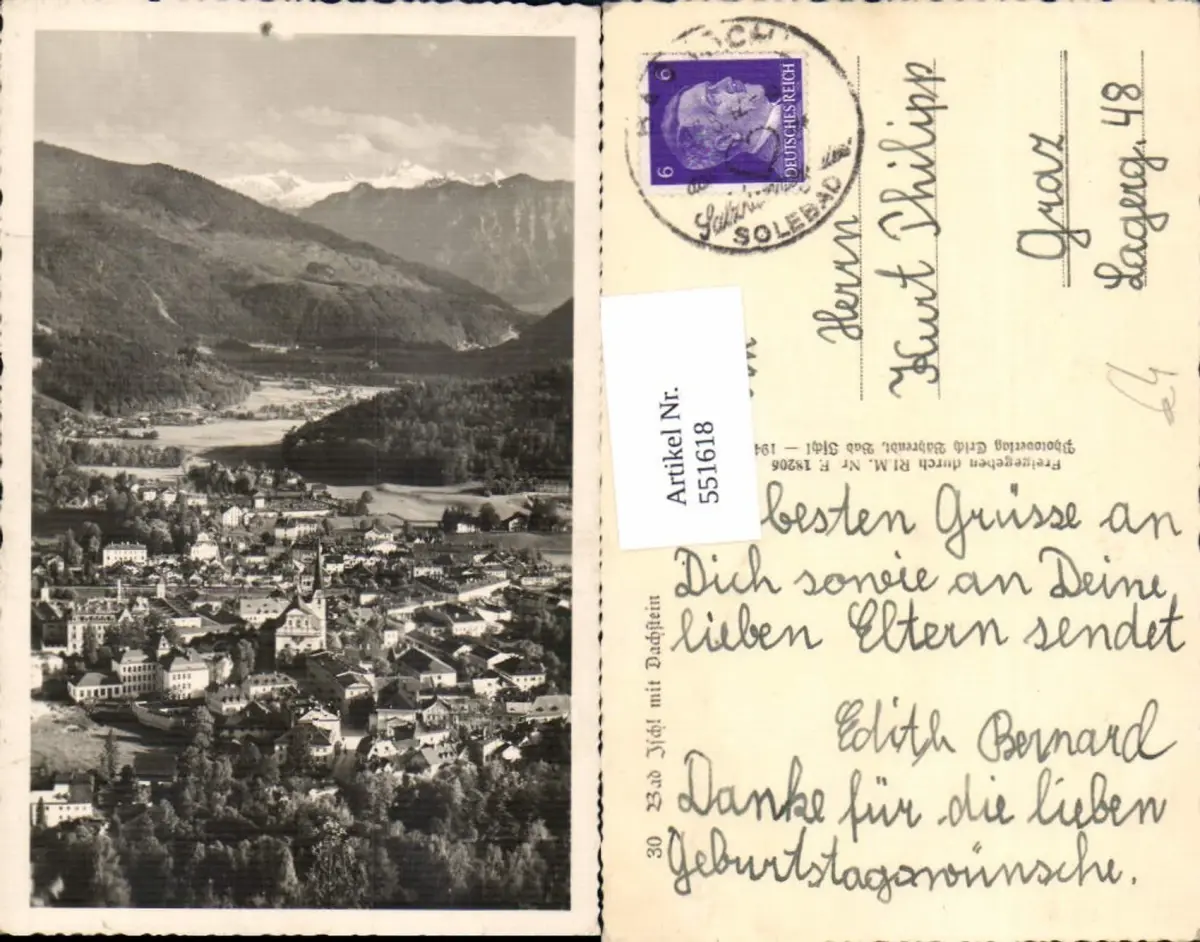 BAD ISCHL
6 6
DEUTSCHES REICH
SOLEBAD
Herrn
Kurt Philipp
Graz
Lagerg. 48
64
Artikel Nr.
551618
Freigegeben durch RLM. Nr. F. 18206
Photoverlag Erich Bährendt, Bad Ischl — 194
30 Bad Ischl mit Dachstein
besten Grüsse an
Dich sowie an Deine
lieben Eltern sendet
Edith Bernard
Danke für die lieben
Geburtstagswünsche.